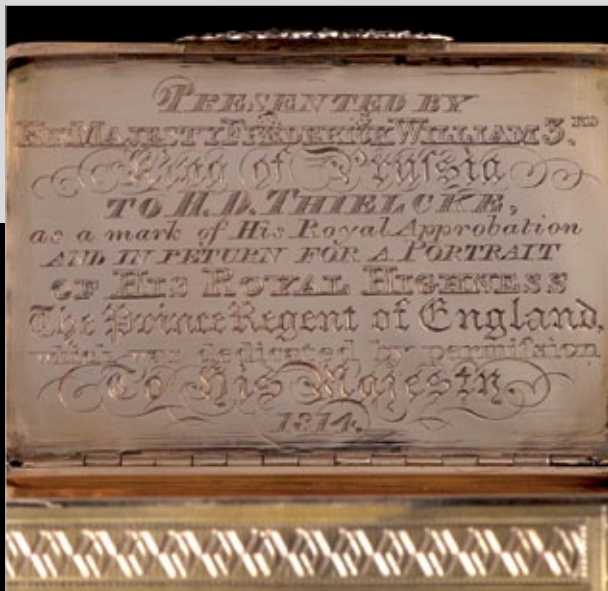 PRESENTED BY
HIS MAJESTY FREDERICK WILLIAM 3.RD
King of Pruſsia
TO H.D. THIELCKE,
as a mark of His Royal Approbation
AND IN RETURN FOR A PORTRAIT
OF HIS ROYAL HIGHNESS
The Prince Regent of England,
which was dedicated by permiſsion
To His Majesty.
1814.